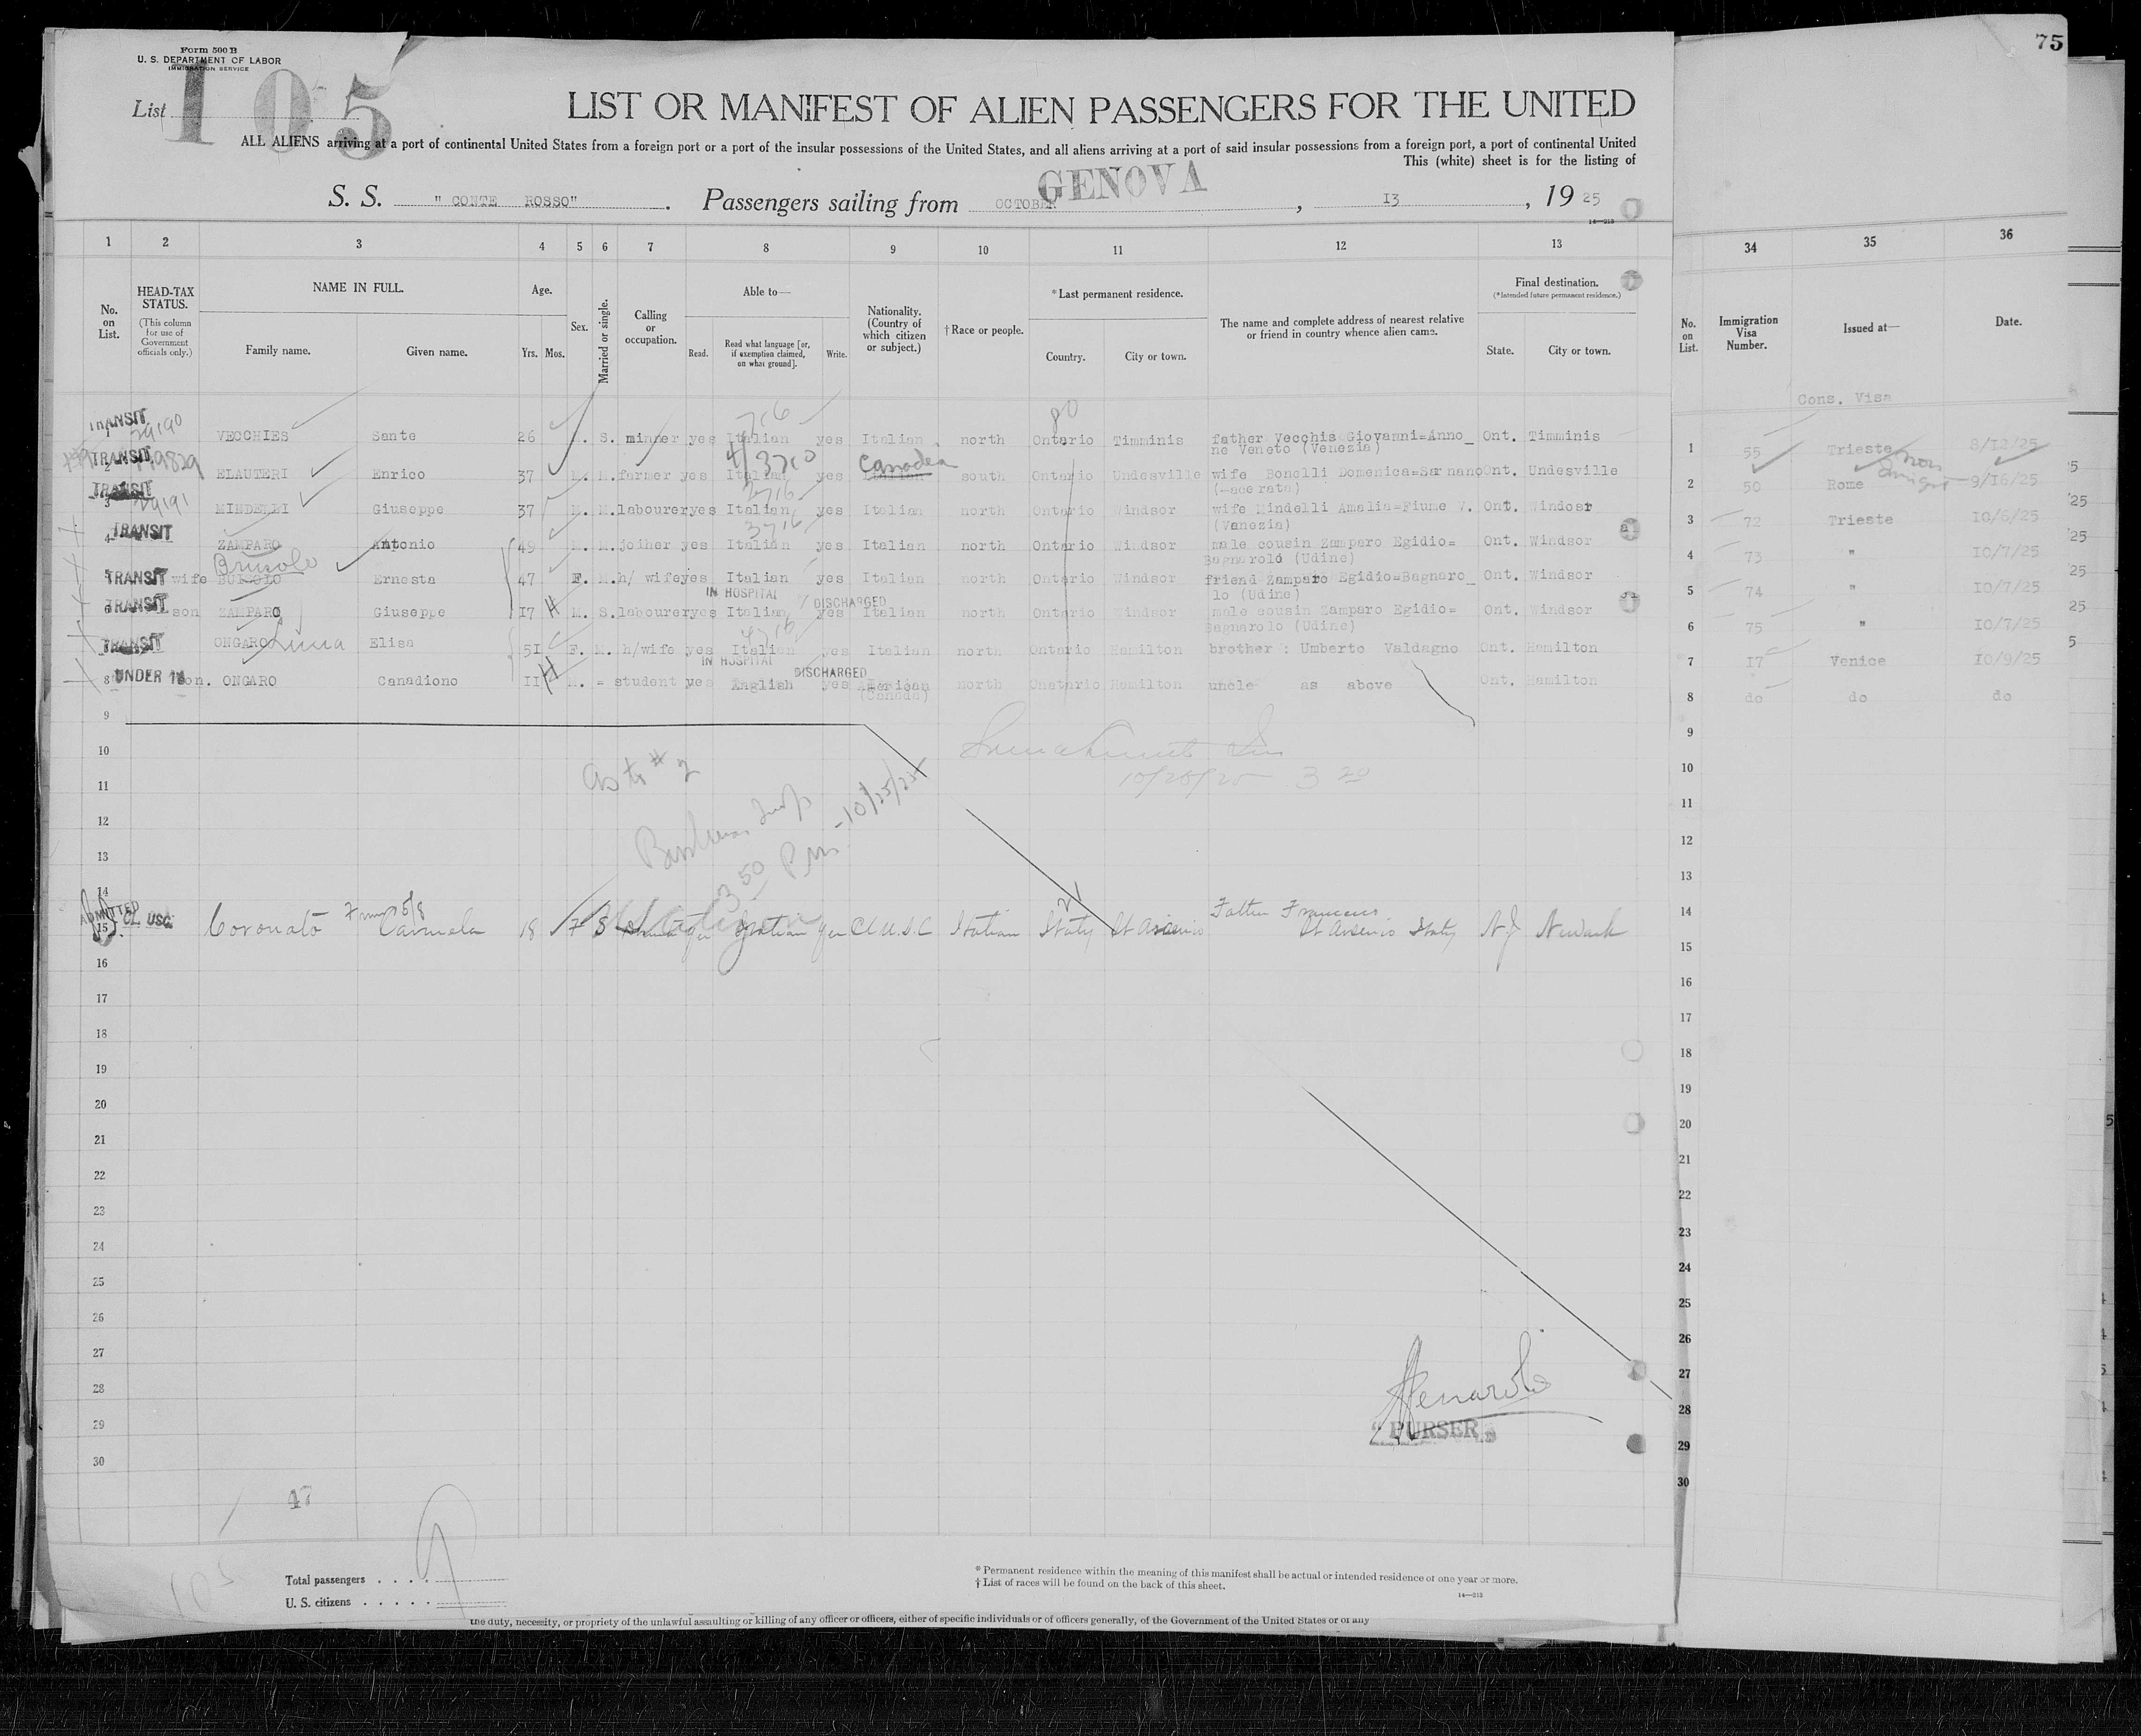 Form 500 B
U. S. DEPARTMENT OF LABOR
IMMIGRATION SERVICE
75
List 105
LIST OR MANIFEST OF ALIEN PASSENGERS FOR THE UNITED
ALL ALIENS arriving at a port of continental United States from a foreign port or a port of the insular possessions of the United States, and all aliens arriving at a port of said insular possessions from a foreign port, a port of continental United
This (white) sheet is for the listing of
S. S. " CONTE ROSSO" . Passengers sailing from GENOVA OCTOBER , 13 , 19 25
14—213
1 2 3 4 5 6 7 8 9 10 11 12 13 34 35 36
No. on List.
HEAD-TAX STATUS.
(This column for use of Government officials only.)
NAME IN FULL.
Family name. Given name.
Age.
Yrs. Mos.
Sex.
Married or single.
Calling or occupation.
Able to—
Read. Read what language [or, if exemption claimed, on what ground]. Write.
Nationality. (Country of which citizen or subject.)
† Race or people.
* Last permanent residence.
Country. City or town.
The name and complete address of nearest relative or friend in country whence alien came.
Final destination.
(* Intended future permanent residence.)
State. City or town.
No. on List.
Immigration Visa Number.
Issued at—
Date.
Cons. Visa
80
TRANSIT 1 VECCHIES Sante 26 M. S. minner yes Italian yes Italian north Ontario Timminis father Vecchis Giovanni=Anno_ Ont. Timminis 1 55 Trieste 8/12/25
ne Veneto (Venezia)
TRANSIT 2 ELAUTERI Enrico 37 M. M. farmer yes Italian yes south Ontario Undesville wife Bonelli Domenica=Sarnano Ont. Undesville 2 50 Rome 9/16/25
(Macerata)
TRANSIT 3 MINDELLI Giuseppe 37 M. M. labourer yes Italian yes Italian north Ontario Windsor wife Mindelli Amalia=Fiume V. Ont. Windosr 3 72 Trieste 10/6/25
(Venezia)
TRANSIT 4 ZAMPARO Antonio 49 M. M. joiner yes Italian yes Italian north Ontario Windsor male cousin Zamparo Egidio= Ont. Windsor 4 73 " 10/7/25
Bagnarolo (Udine)
Brusolo
TRANSIT 5 wife Ernesta 47 F. M. h/ wife yes Italian yes Italian north Ontario Windsor friend Zamparo Egidio=Bagnaro_ Ont. Windsor 5 74 " 10/7/25
lo (Udine)
IN HOSPITAL DISCHARGED
TRANSIT 6 son ZAMPARO Giuseppe 17 M. S. labourer yes Italian yes Italian north Ontario Windsor male cousin Zamparo Egidio= Ont. Windsor 6 75 " 10/7/25
Bagnarolo (Udine)
TRANSIT ONGARO Elisa 51 F. M. h/wife yes Italian yes Italian north Ontario Hamilton brother : Umberto Valdagno Ont. Hamilton 7 17 Venice 10/9/25
IN HOSPITAL DISCHARGED
8 UNDER 1 son. ONGARO Canadiono 11 M. = student yes English yes north Onetario Hamilton uncle as above Ont. Hamilton 8 do do do
(Canada)
9 9
10 10
11 11
12 12
13 13
14 14
as to # 2
10/25/25 3 20
3 50 Pm -10/25/25
Father Francesco
ADMITTED 15 CL USC Coronato Carmela 18 F S Italian CL U.S.C Italian Italy St Arsenio St Arsenio Italy NJ Newark 15
16 16
17 17
18 18
19 19
20 20
21 21
22 22
23 23
24 24
25 25
26 26
27 27
28 28
29 29
30 30
"PURSER"
47
105
Total passengers . . . .
U. S. citizens . . . . .
* Permanent residence within the meaning of this manifest shall be actual or intended residence of one year or more.
† List of races will be found on the back of this sheet.
14—213
the duty, necessity, or propriety of the unlawful assaulting or killing of any officer or officers, either of specific individuals or of officers generally, of the Government of the United States or of any